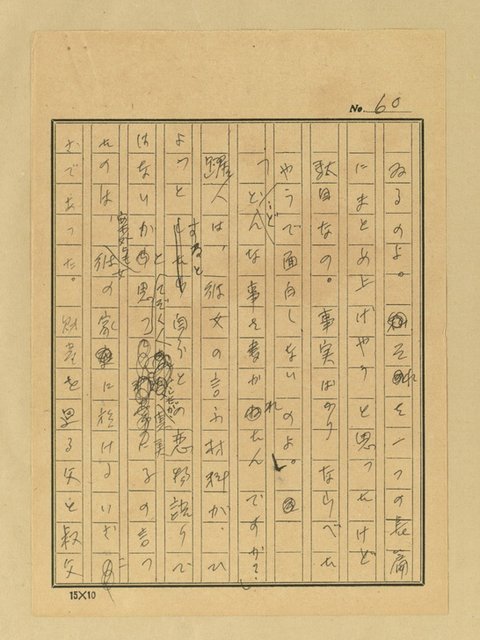 No. 60
ゐるのよ。それを一つの長篇
にまとめ上げやうと思つたけど
駄目なの。事実ばかりならべた
やうで面白くないのよ。」
「どんな事を書かれたんですか？」
躍人は、彼女の言ふ材料が、ひ
よつとすると自分との恋物語りで
はないかと思つて
るの言つ
たのは、彼女の家に於けるいざ
こであつた。財産を
る父と叔父
15×10